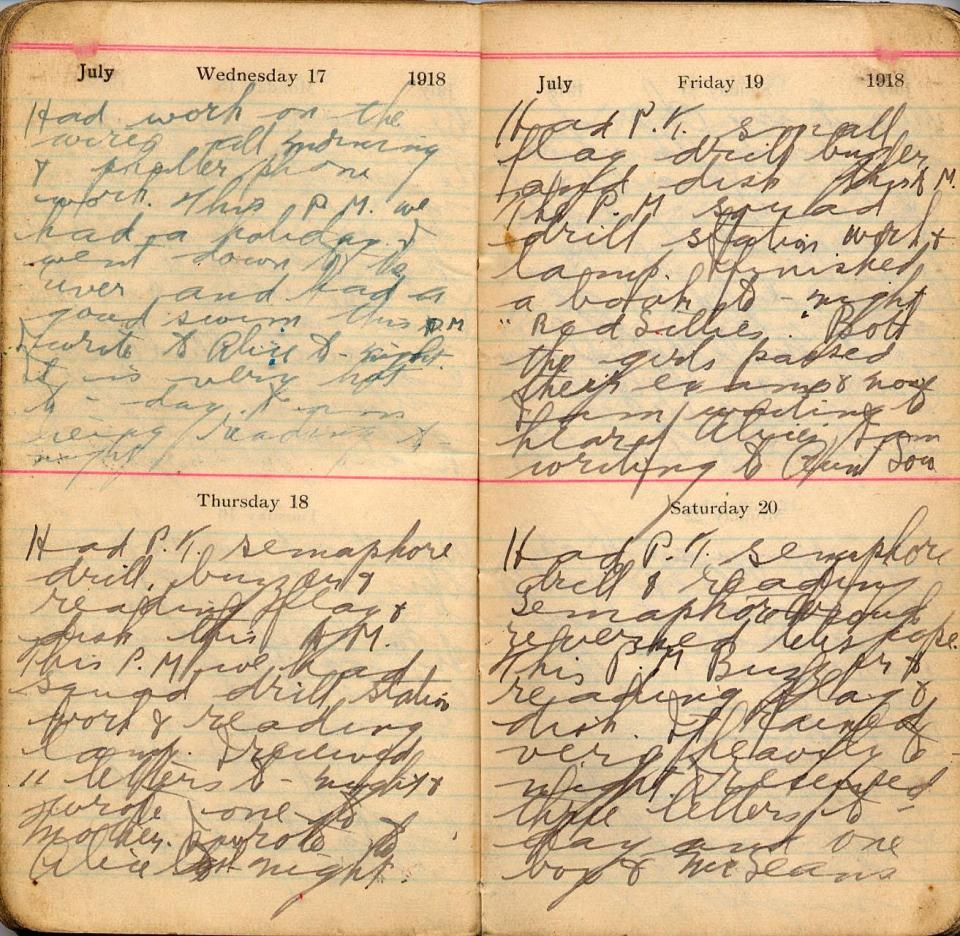 July Wednesday 17 1918
Had work on the
wires all morning
& phone
work. This P.M. we
had a holiday &
went down to the
river and had a
good swim this P.M
I wrote to Alice to-night.
It is very hot
to-day. I am
reading to-
night
Thursday 18
Had P.T. semaphore
drill, buzzing
reading flag &
disk this A.M.
This P.M we had
squad drill, station
work & reading
lamp. I received
11 letters to-night &
wrote one to
Mother. I wrote to
Alice to-night.
July Friday 19 1918
Had P.T. small
flag drill buzzer
and disk this A.M.
The P.M squad
drill station work &
lamp. Finished
a book to-night
"Red Lillies." Both
the girls passed
their exams & now
I am waiting to
hear Alice, I am
writing to Aunt Lou
Saturday 20
Had P.T. semaphore
drill & reading
semaphore through
reversed telescope.
This P.M Buzzer &
reading flag &
disk. It rained
very heavily to-
night. I received
three letters to
day and one
box & McLeans